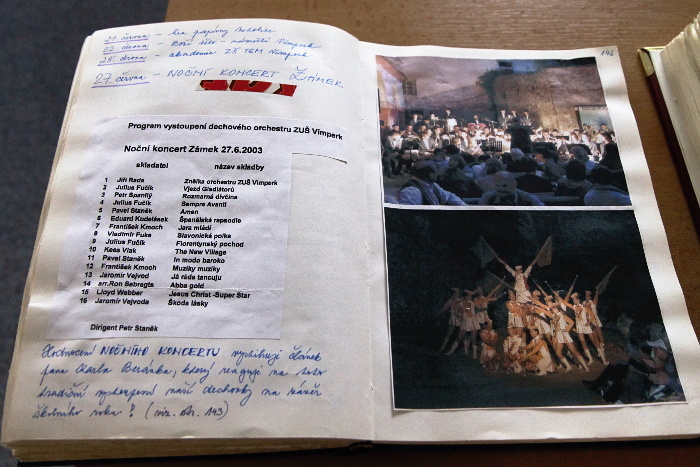 21. června - hra papírny Sudslavice
22. června - Boží tělo - náměstí Vimperk
25. června - akademie ZŠ TGM Vimperk
27. června - NOČNÍ KONCERT ZÁMEK
146
Program vystoupení dechového orchestru ZUŠ Vimperk
Noční koncert Zámek 27.6.2003
skladatel název skladby
1 Jiří Rada Znělka orchestru ZUŠ Vimperk
2 Julius Fučík Vjezd Gladiátorů
3 Petr Španilý Rozmarná dívčina
4 Julius Fučík Sempre Avanti
5 Pavel Staněk Amen
6 Eduard Kudelásek Španělské rapsodie
7 František Kmoch Jara mládí
8 Vladimír Fuka Slavonická polka
9 Julius Fučík Florentynský pochod
10 Kees Vlak The New Village
11 Pavel Staněk In modo baroko
12 František Kmoch Muziky muziky
13 Jaromír Vejvod Já ráda tancuju
14 arr.Ron Sebregts Abba gold
15 Lloyd Webber Jesus Christ -Super Star
16 Jaromír Vejvoda Škoda lásky
Dirigent Petr Staněk
Hodnocení NOČNÍHO KONCERTU vystihuje článek
pana Karla Beráka, který reaguje na toto
tradiční vystoupení naší dechovky na závěr
školního roku! (viz. str. 143)